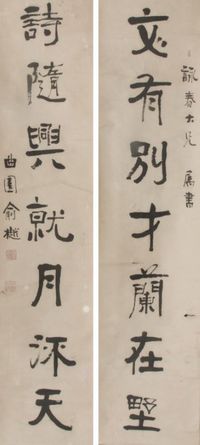 詠春大兄屬書
文有別才蘭在野
詩隨興就月天
曲園俞樾